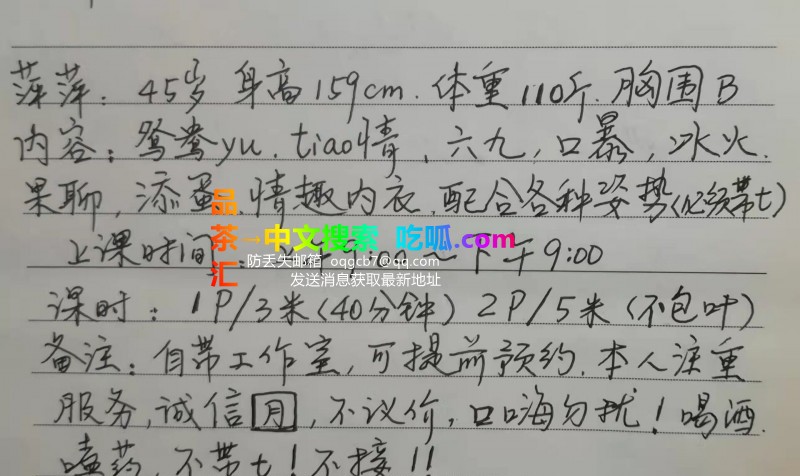 萍萍：45岁 身高159cm.体重110斤.胸围B
内容：鸳鸯yu.tiao情，六九，口暴，冰火.
果聊，添蛋，情趣内衣，配合各种姿势(必须带t)
品茶汇→中文搜索 吃呱.com
上课时间：午9:00～下午9:00
防丢失邮箱 oqgcb7@qq.com
发送消息获取最新地址
课时：1P/3米(40分钟) 2P/5米(不包叶)
备注：自带工作室，可提前预约.本人注重
服务，诚信月，不议价，口嗨勿扰！喝酒.
嗑药，不带t！不接！！